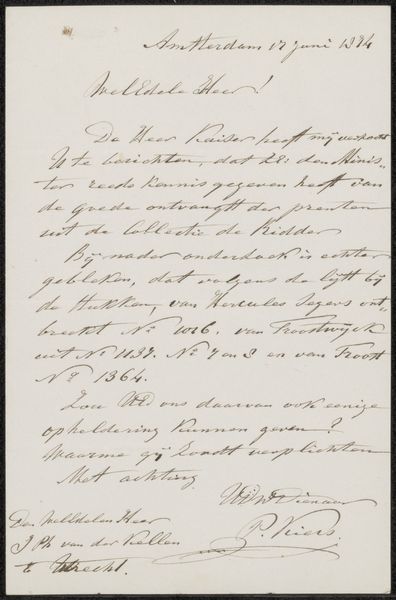 Amsterdam 17 Juni 1874
WelEdele Heer!
De Heer Kaiser heeft mij verzocht
U te berichten, dat ZE: den Minis-
ter reeds kennis gegeven heeft van
de goede ontvangst der prenten
uit de Collectie de Ridder
Bij nader onderzoek is echter
gebleken, dat volgens de lijst bij
de stukken, van Hercules Segers ont-
breekt No 1016. van Troostwijck
uit No 1137. No 7 en 8 en van Troost
No 1364.
Zou UEd ons daarvan ook eenige
opheldering kunnen geven?
Waarme gij zoudt verplichten
Met achting
UEdDw Dienaar
P. Kiers.
Den WelEdelen Heer
J Ph van der Kellen
te Utrecht.